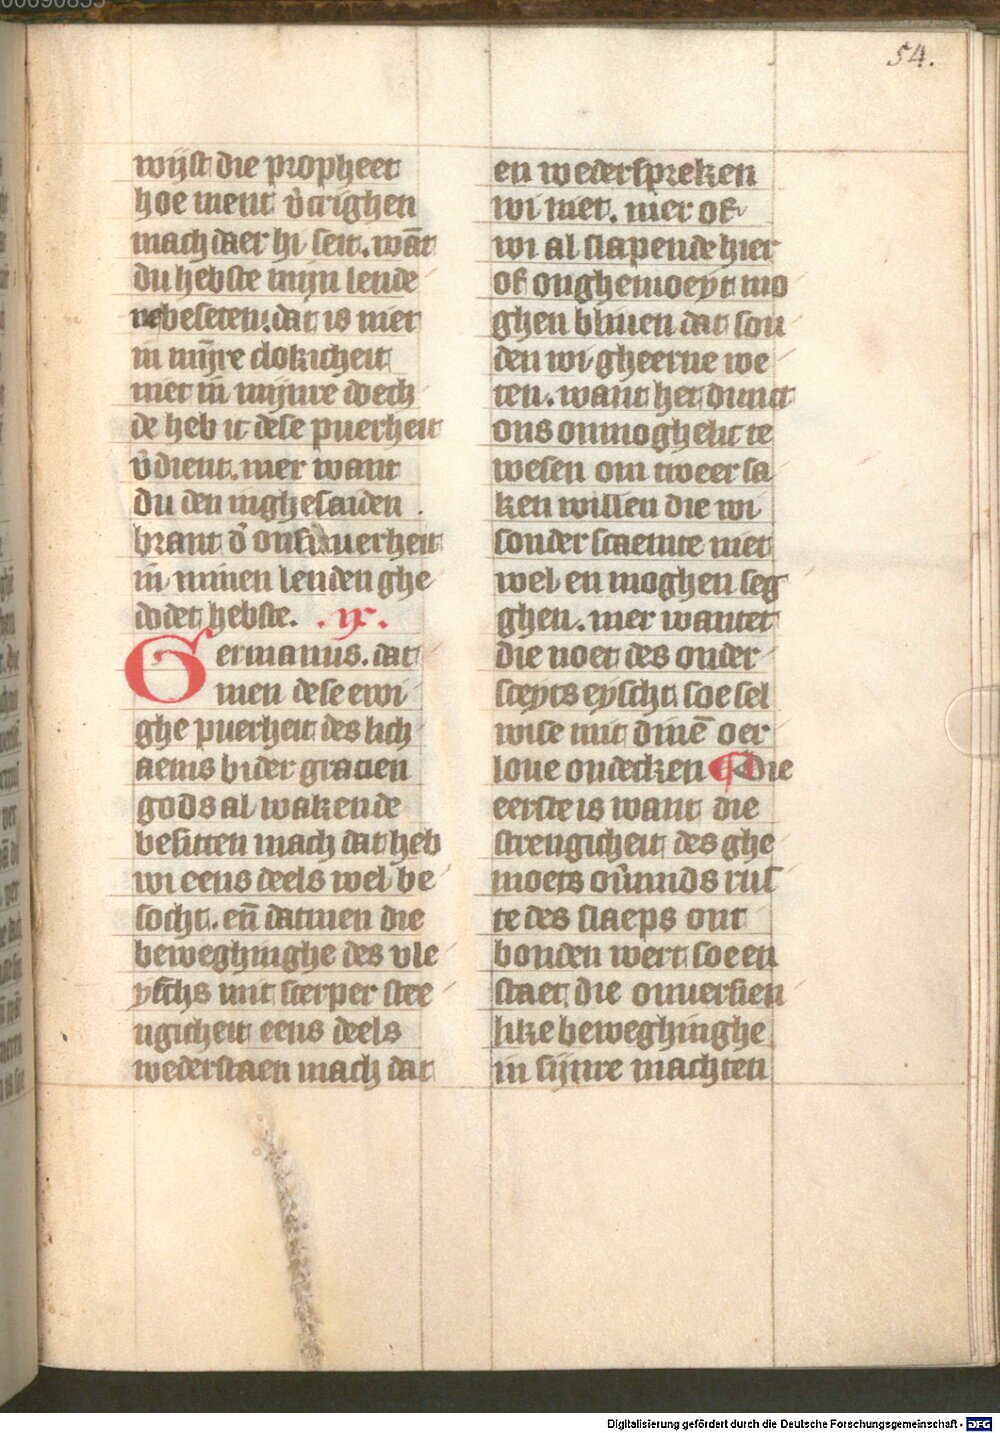 54.
wijst die propheet
hoe ment v̉crighen
mach daer hi seit. wāt
du hebste mijn lende
nebeseten. dat is niet
in mijre clokicheit
niet in mijnre doech
de heb ic dese puerheit
v̉dient. mer want
du den inghesaiden
brant d̉ onsuuerheit
in minen lenden ghe
dodet hebste. .ix.
Germanus. dat
men dese ewi
ghe puerheit des lich
aems bider gracien
gods al wakende
besitten mach dat heb
wi eens deels wel be
socht. en̄ datmen die
beweghinghe des vle
yschs mit scerper stre
ngicheit eens deels
wederstaen mach dat
en wederspreken
wi niet. mer of
wi al slapende hier
of onghemoeyt mo
ghen bliuen dat sou
den wi gheerne we
ten. want het dunct
ons onmoghelic te
wesen om tweer sa
ken willen die wi
sonder scaemte niet
wel en moghen seg
ghen. mer wantet
die noet des onder
sceyts eyscht soe sel
wise mit dinē oer
loue ondecken ¶ Die
eerste is want die
strengicheit des ghe
moets oủmids rus
te des slaeps ont
bonden wert soe en
staet die onuersien
like beweghinghe
in sijnre machten
Digitalisierung gefördert durch die Deutsche Forschungsgemeinschaft - DFG